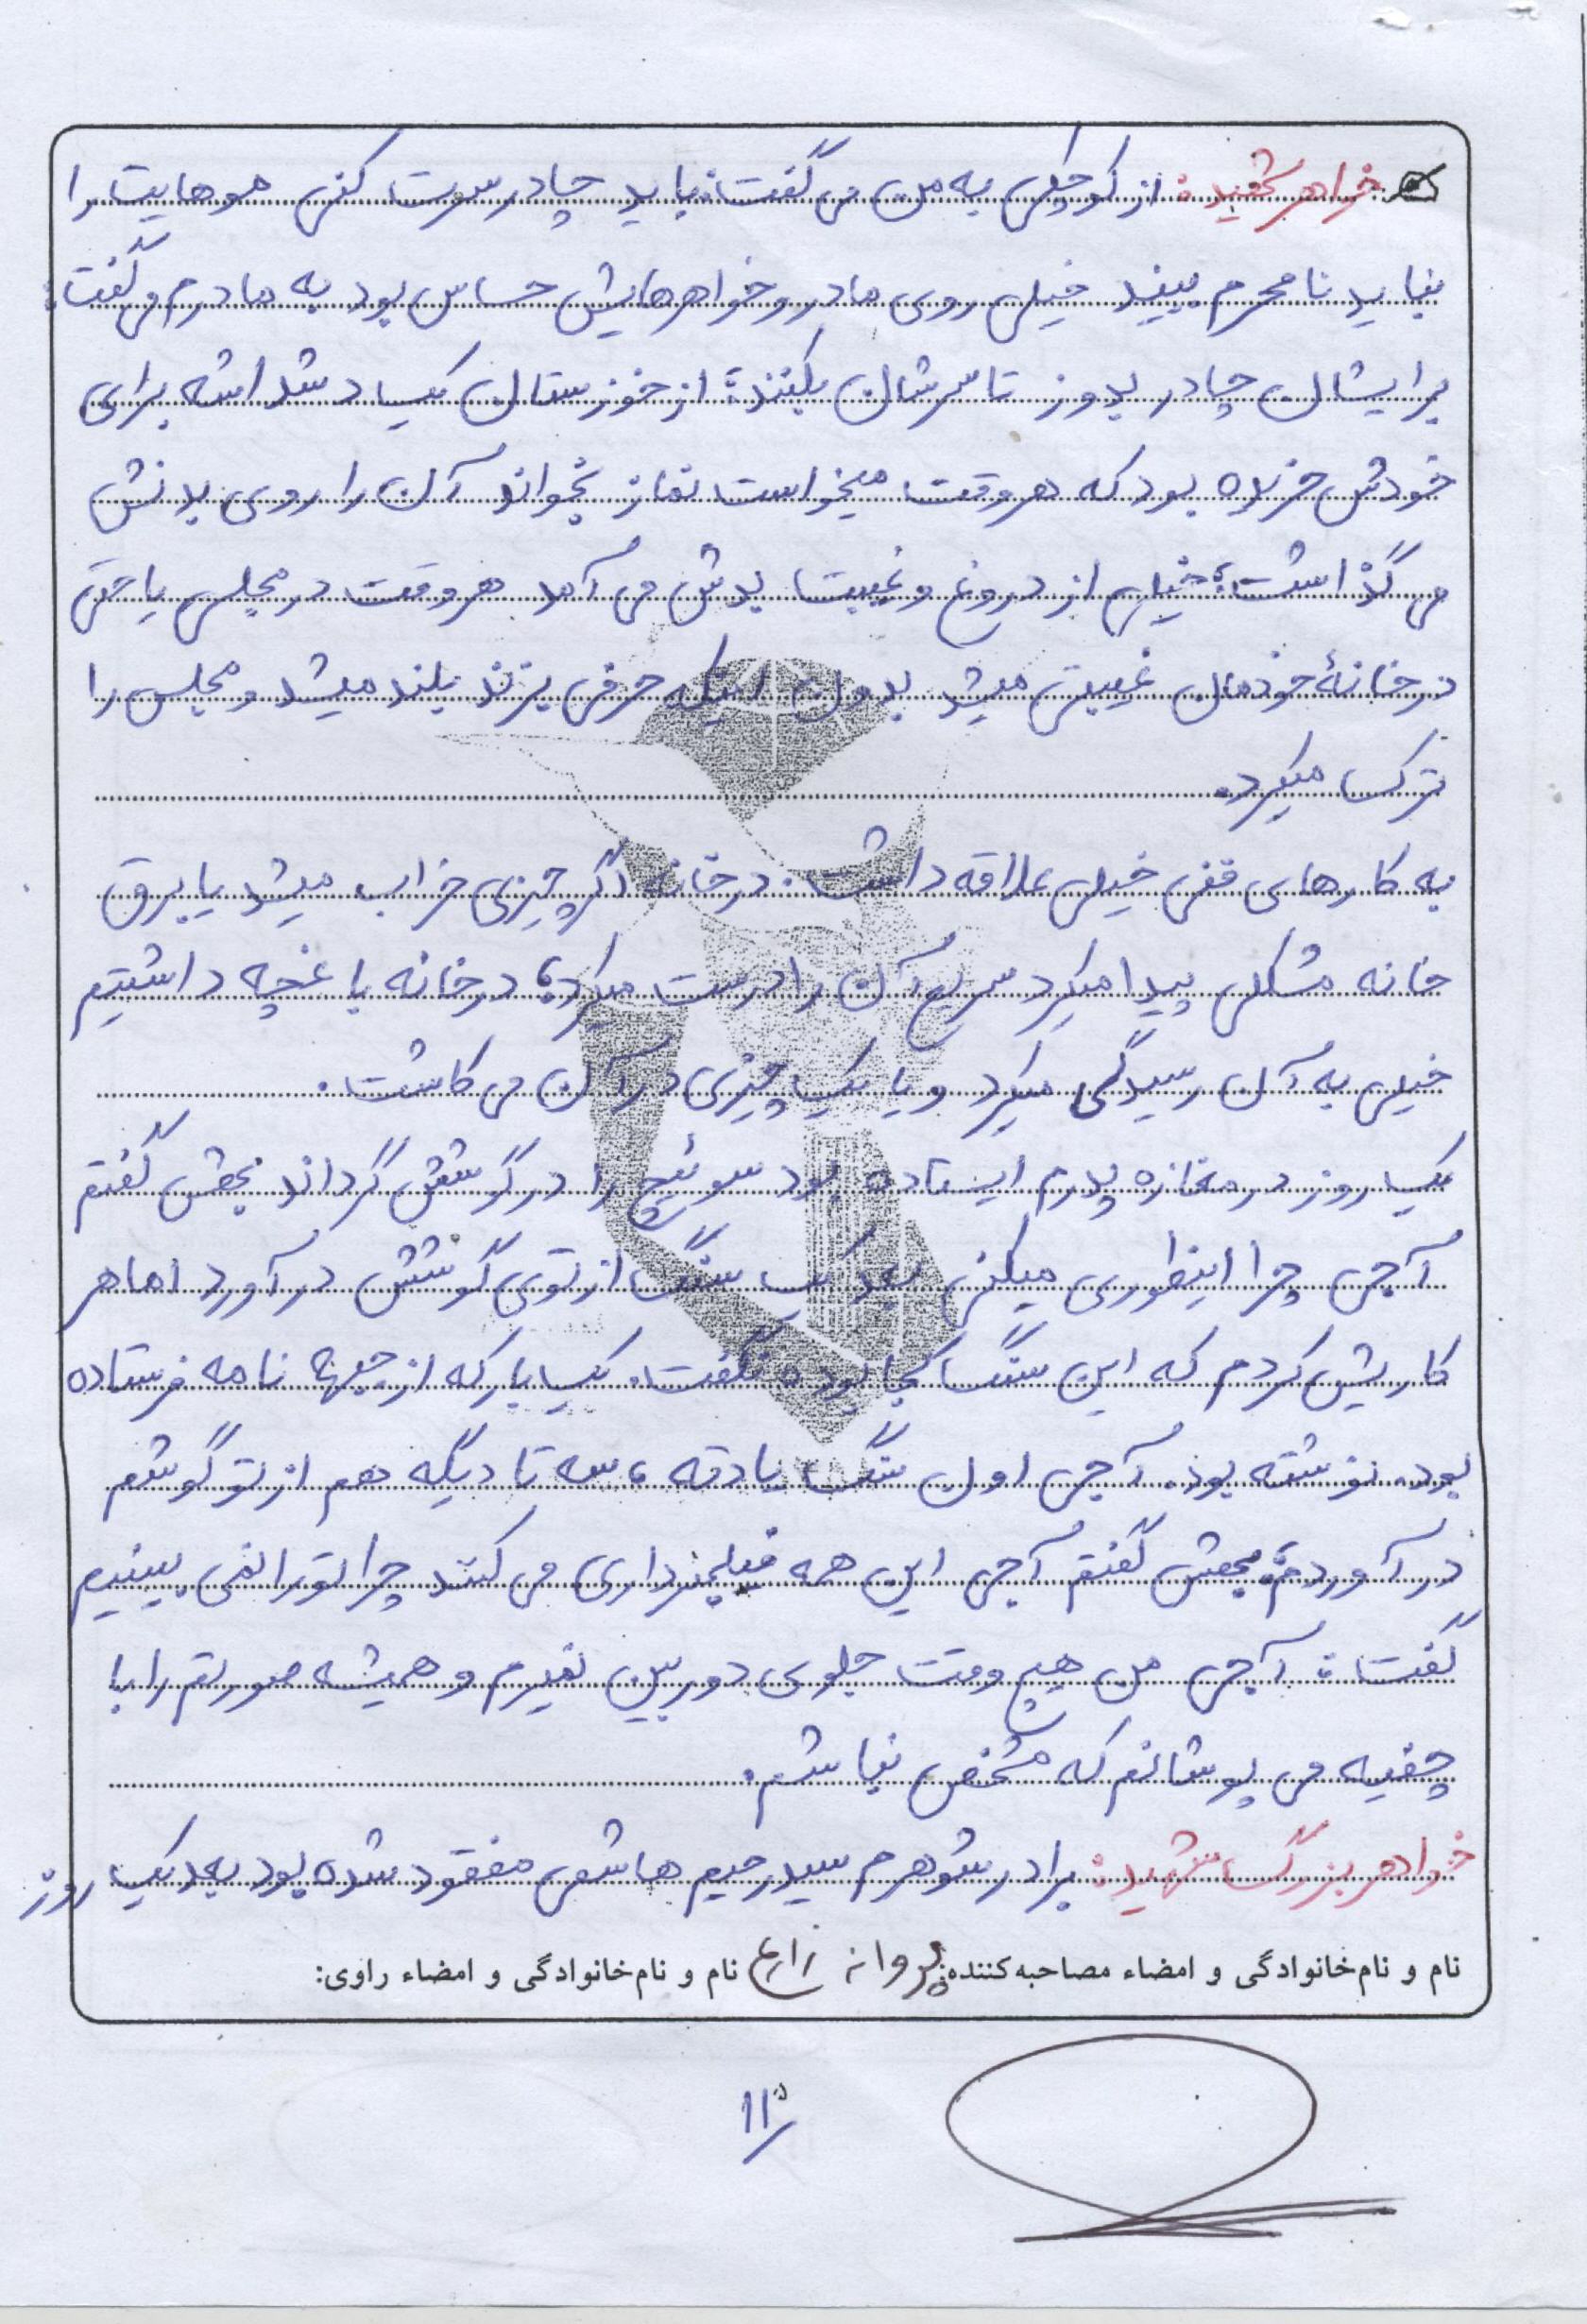 خواهر شهید: از کوچکی به من می گفت: باید چادر سرت کنی موهایت را
نباید نامحرم ببیند خیلی روی مادر و خواهرهایش حساس بود به مادرم می گفت:
برایشان چادر بدوز تا سرشان بکنند؛ از خوزستان یک دشداشه برای
خودش خریده بود که هر وقت میخواست نماز بخواند آن را روی بدنش
می گذاشت؛ خیلی از دروغ و غیبت بدش می آمد هر وقت در مجلس یا حتی
در خانهٔ خودمان غیبتی میشد بدون اینکه حرفی بزند بلند میشد و مجلس را
ترک میکرد.
به کارهای فنی خیلی علاقه داشت. در خانه اگر چیزی خراب میشد یا برق
خانه مشکلی پیدا میکرد سریع آن را درست میکرد؛ در خانه باغچه داشتیم
خیلی به آن رسیدگی میکرد و یا یک چیزی در آن می کاشت.
یک روز در مغازه پدرم ایستاده بود سوئیچ را در گوشش گرداند بهش گفتم
آجی چرا اینطوری میکنی بعد یک سنگ از توی گوشش درآورد اما هر
کاریش کردم که این سنگ کجا بوده نگفت. یک بار که از جبهه نامه فرستاده
بود. نوشته بود. آجی اون سنگ یادته، سه تا دیگه هم از تو گوشم
درآوردم؛ بهش گفتم آجی این همه فیلمبرداری می کنند چرا تو را نمی بینیم
گفت: آجی من هیچ وقت جلوی دوربین نمیرم و همیشه صورتم را با
چفیه می پوشانم که مشخص نباشم.
خواهر بزرگ شهید: برادر شوهرم سید رحیم هاشمی مفقود شده بود بعد یک روز
نام و نام‌خانوادگی و امضاء مصاحبه‌کننده: پروانه زارع نام و نام‌خانوادگی و امضاء راوی: